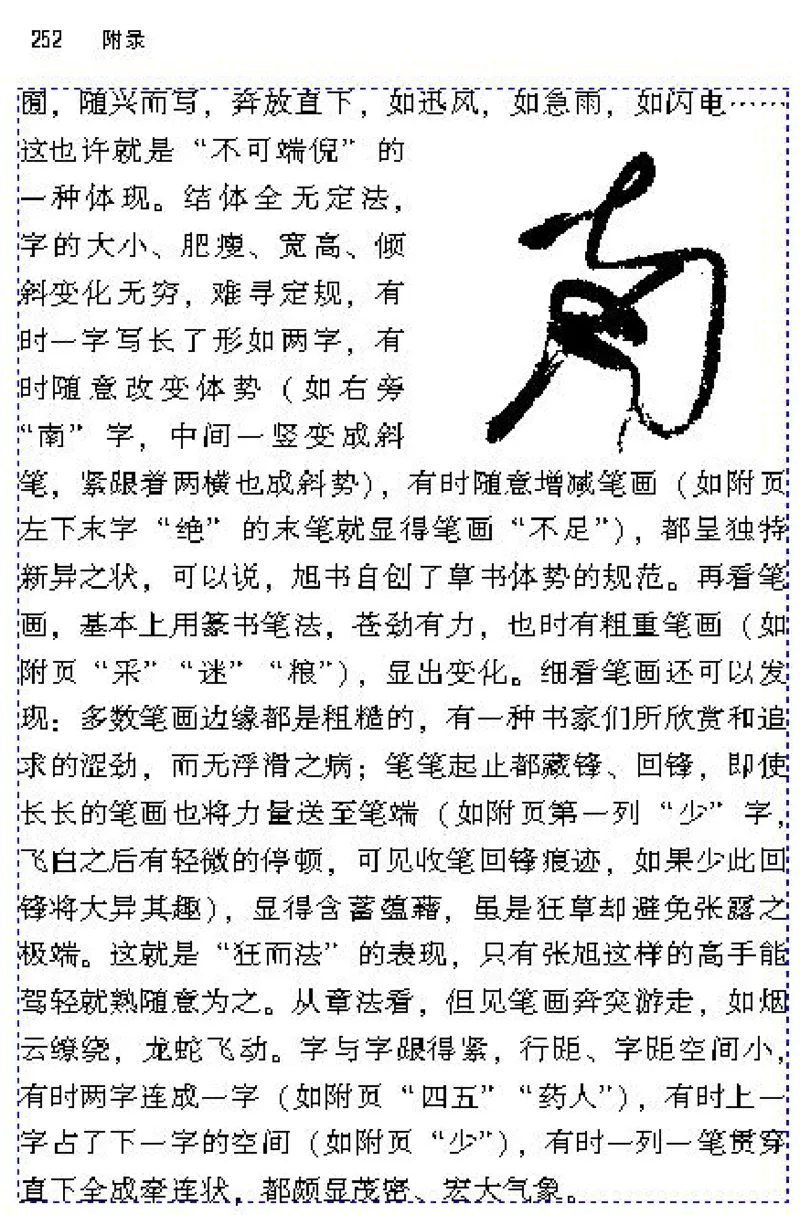 252 附录
囿，随兴而写，奔放直下，如迅风，如急雨，如闪电……
这也许就是“不可端倪”的
一种体现。结体全无定法，
字的大小、肥瘦、宽高、倾
斜变化无穷，难寻定规，有
时一字写长了形如两字，有
时随意改变体势（如右旁
“南”字，中间一竖变成斜
南
笔，紧跟着两横也成斜势），有时随意增减笔画（如附页
左下末字“绝”的末笔就显得笔画“不足”），都呈独特
新异之状，可以说，旭书自创了草书体势的规范。再看笔
画，基本上用篆书笔法，苍劲有力，也时有粗重笔画（如
附页“采”“迷”“粮”），显出变化。细看笔画还可以发
现：多数笔画边缘都是粗糙的，有一种书家们所欣赏和追
求的涩劲，而无浮滑之病；笔笔起止都藏锋、回锋，即使
长长的笔画也将力量送至笔端（如附页第一列“少”字，
飞白之后有轻微的停顿，可见收笔回锋痕迹，如果少此回
锋将大异其趣），显得含蓄蕴藉，虽是狂草却避免张露之
极端。这就是“狂而法”的表现，只有张旭这样的高手能
驾轻就熟随意为之。从章法看，但见笔画奔突游走，如烟
云缭绕，龙蛇飞动。字与字跟得紧，行距、字距空间小，
有时两字连成一字（如附页“四五”“药人”），有时上一
字占了下一字的空间（如附页“少”），有时一列一笔贯穿
直下全成牵连状，都颇显茂密、宏大气象。